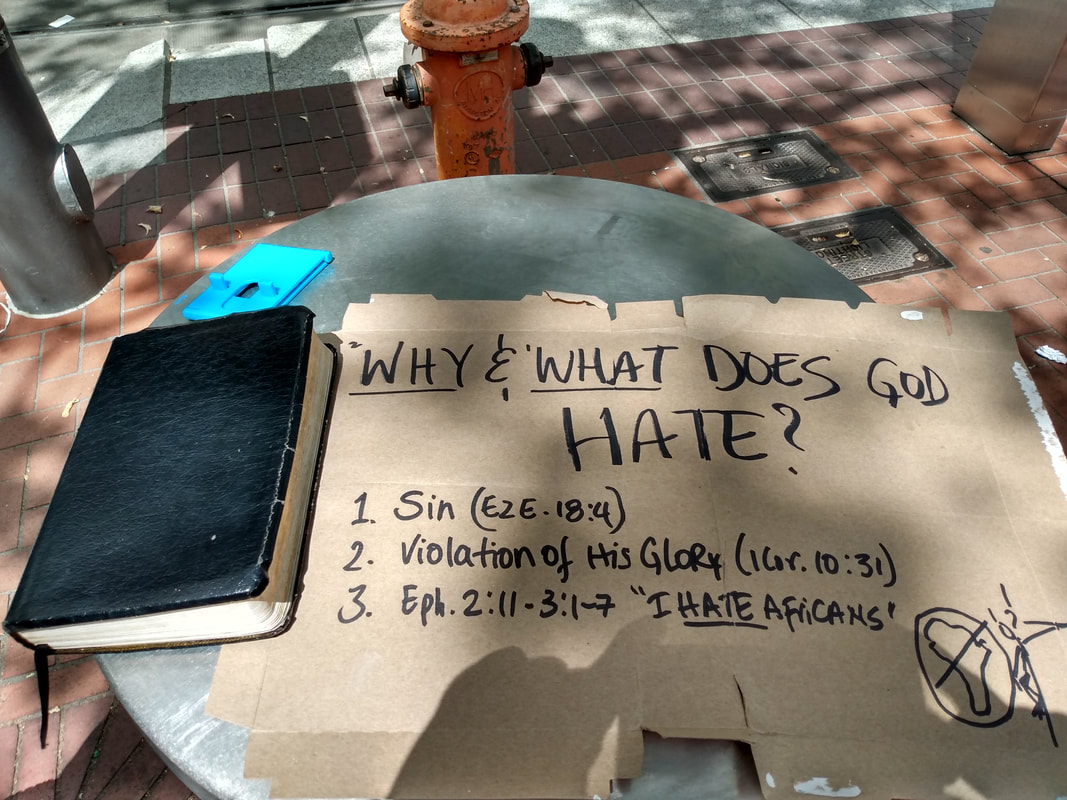 "WHY & 'WHAT DOES GOD
HATE?
1. Sin (EZE. 18:4)
2. Violation of His GLORY (1 Cor. 10:31)
3. Eph. 2:11-3:1-7 "I HATE AfriCANS"